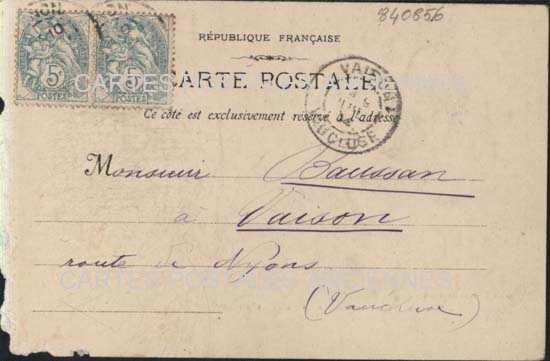 840856
RÉPUBLIQUE FRANÇAISE
CARTE POSTALE
Ce côté est exclusivement réservé à l'adresse
5c 5c
POSTES POSTES
VAISON
VAUCLUSE
Monsieur Baussan
à Vaison
route de Nyons
(Vaucluse)
CARTES POSTALES ANCIENNES
CARTES POSTALES ANCIENNES